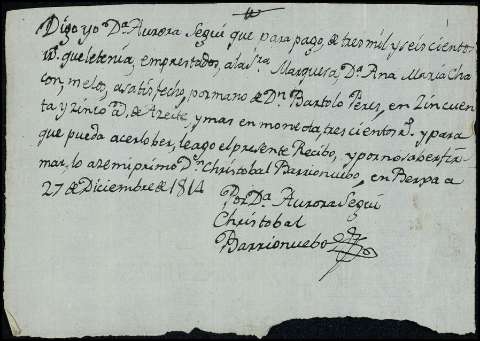 Digo yo Dª Aurora Segui que para pago, de tres mil y seis cientos
rˢ. que le tenia, emprestados, a la sʳa Marquesa, Dª Ana Maria Cha
con, me los, a satisfecho, por mano de Dⁿ Bartolo Peres, en Zincuen
ta y zinco @. de Azeite, y mas en moneda tres cientos rˢ. y para
que pueda acerlo ber, le ago el presente Recibo, y por no saber fir
mar, lo aze mi primo Dⁿ Christobal Barrionuebo, en Berja a
27 de Diciembre de 1814
Por Dª Aurora Segui
Christobal
Barrionuebo